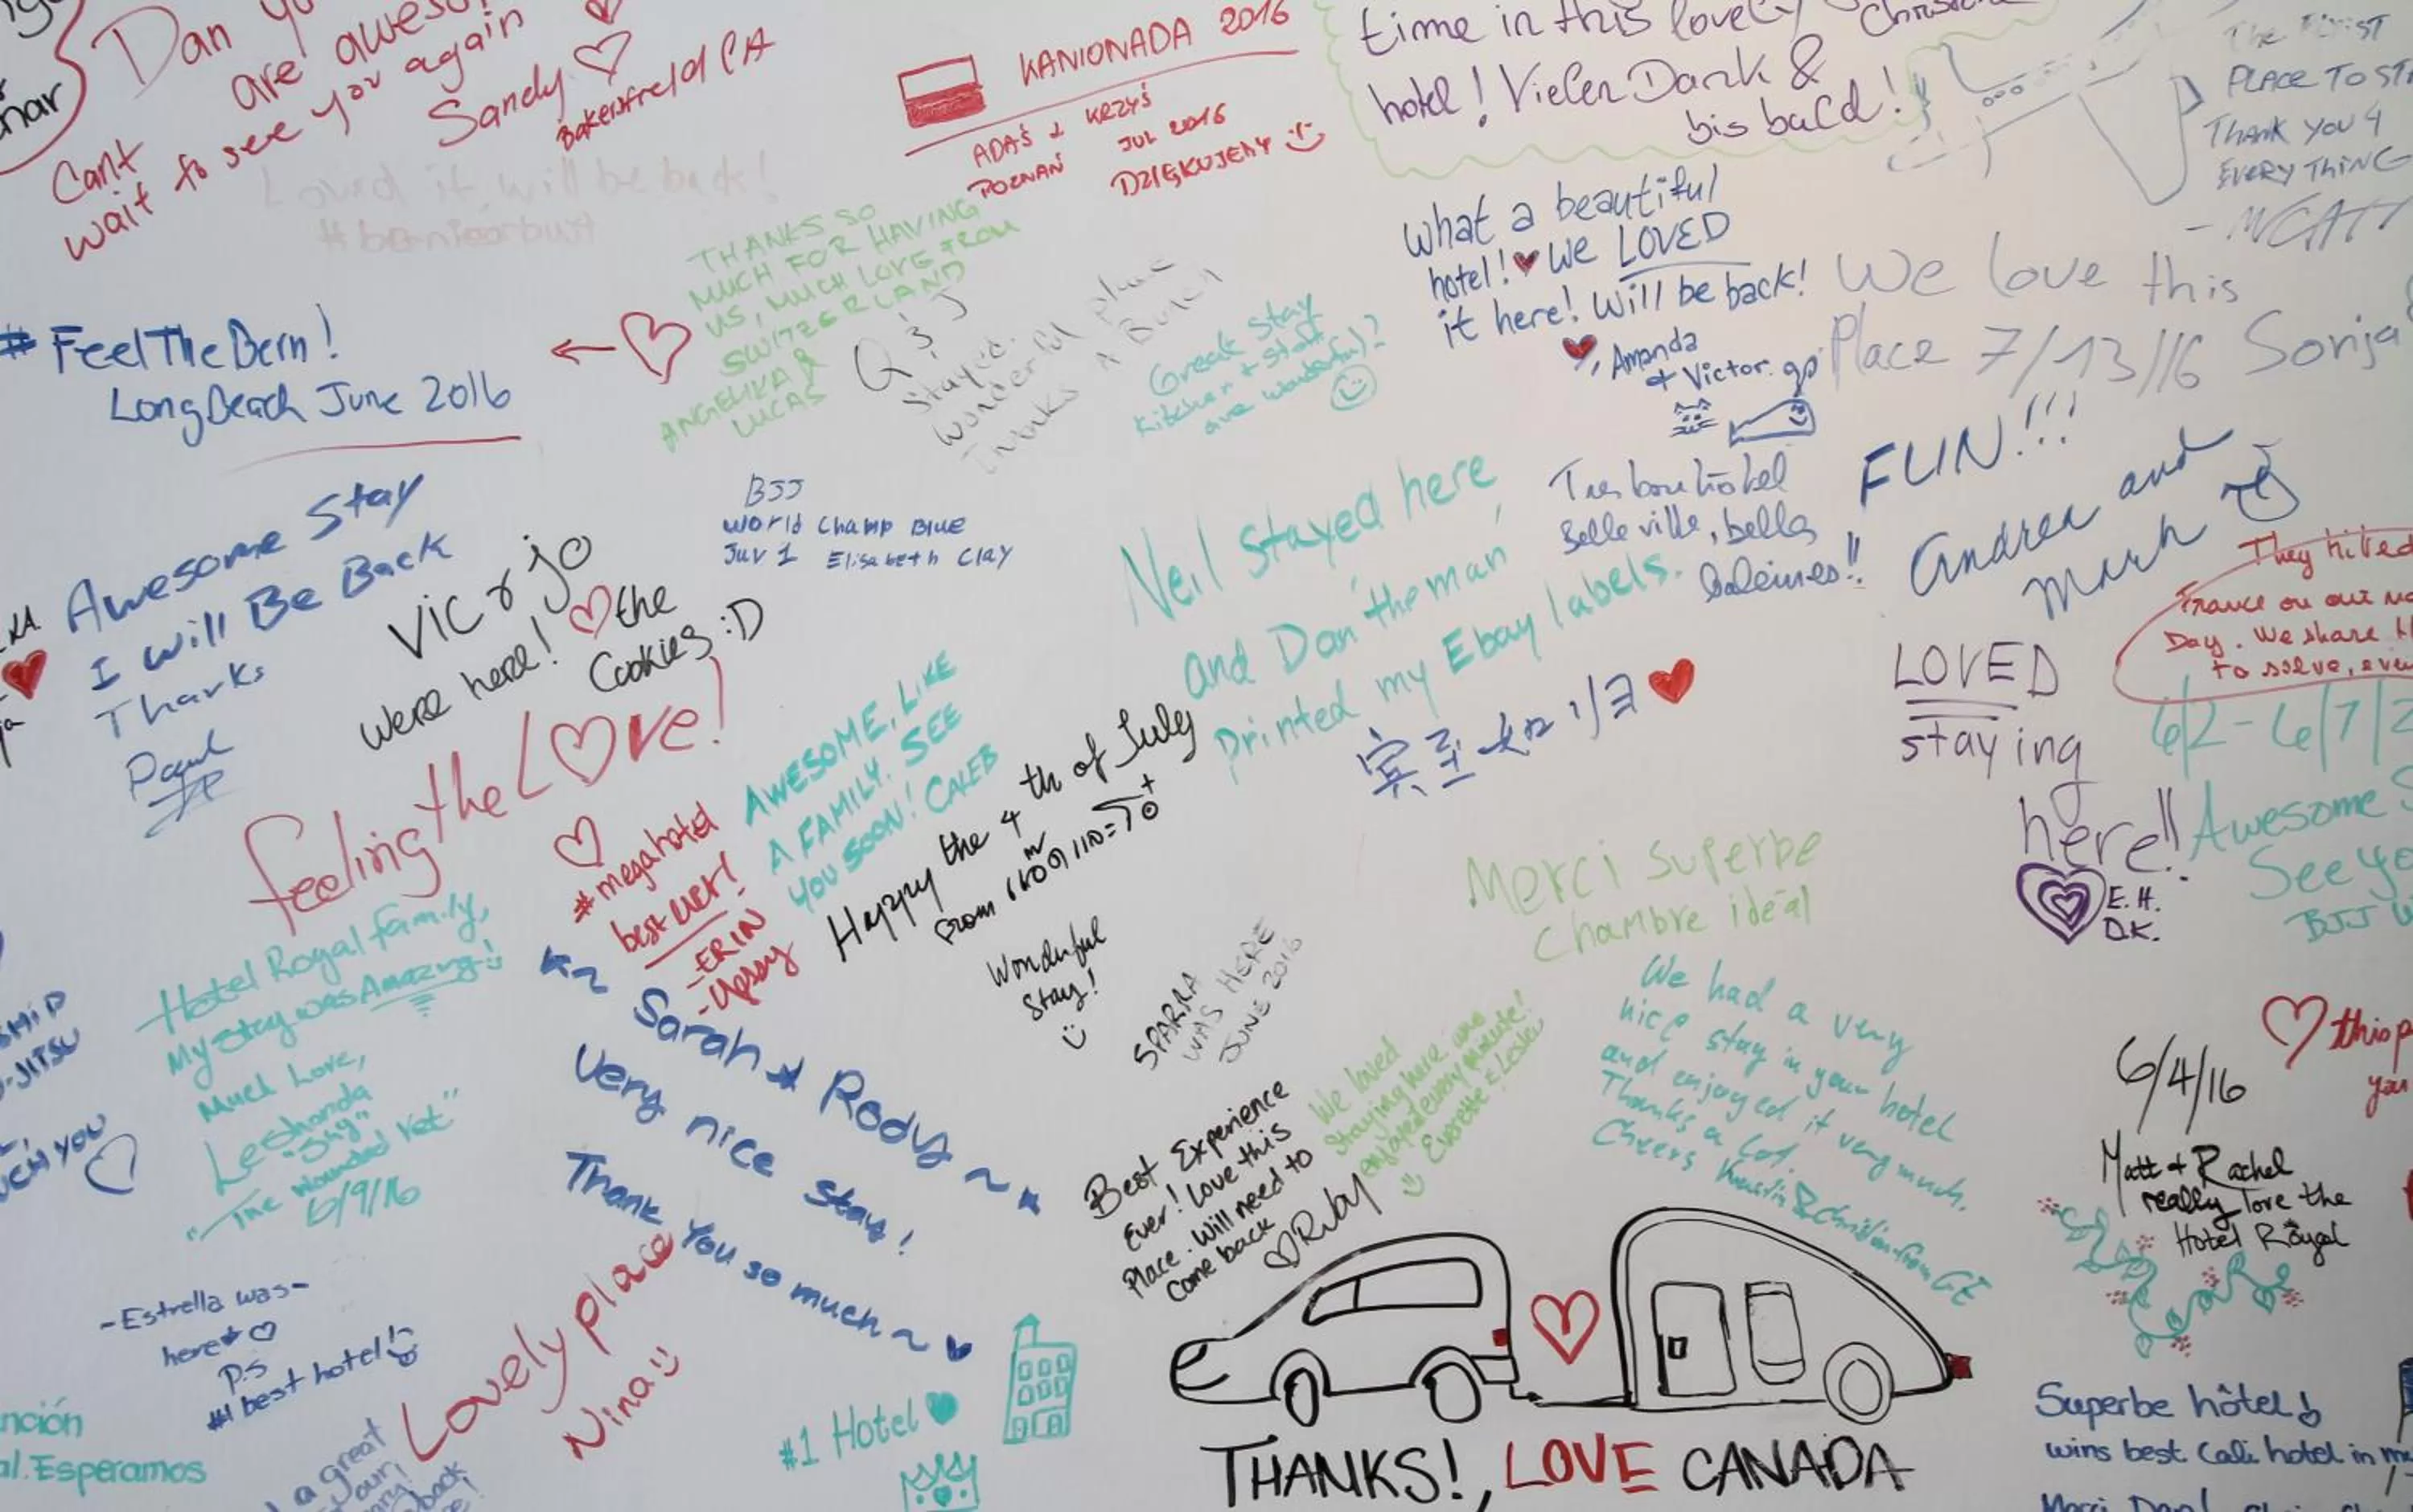 Dan
are
Can't
wait to see you again
Sandy
Bakersfield CA
Loved it, will be back!
KANIONADA 2016
ADAŚ & KRZYŚ
POZNAŃ
JUL 2016
DZIĘKUJEMY
time in this lovely
hotel! Vielen Dank &
bis bald!
PLACE TO
THANK YOU 4
EVERYTHING
THANKS SO
MUCH FOR HAVING
US, MUCH LOVE FROM
SWITZERLAND
ANGELIKA &
LUCAS
Stayed.
Wonderful place
Thanks A Bunch
Great Stay
Kitchen + staff
are wonderful
What a beautiful
hotel! We LOVED
it here! Will be back!
Amanda
+ Victor.
We love this
Place 7/13/16 Sonja
#FeelTheBern!
Long Beach June 2016
Awesome Stay
I Will Be Back
Thanks
Paul
BJJ
World Champ Blue
Juv 1 Elisabeth Clay
Vic & Jo
were here! the
Cookies :D
Neil stayed here
and Dan 'the man'
printed my Ebay labels.
Tres bon hôtel
Belle ville, belles
baleines!!
FUN!!!
Andrea and
They
France on our
Day. We share
to solve,
宾至如归
LOVED
staying
here!!
E.H.
D.K.
6/2-6/7/
Awesome
See
BJJ
feeling the LOVE!
#megahotel
best ever!
-ERIN
AWESOME, LIKE
A FAMILY. SEE
YOU SOON! CALEB
Happy the 4th of July
From
Wonderful
Stay!
SPARRA
WAS HERE
JUNE 2016
Merci Superbe
Chambre idéal
Hotel Royal family,
My stay was Amazing!
Much Love,
Leshonda
"The Wounded Vet"
6/9/16
~ Sarah & Rody ~
Very nice stay!
Thank you so much ~
We loved
staying here and
enjoyed every minute!
Best Experience
Ever! Love this
Place. Will need to
Come back
Ruby
We had a very
nice stay in your hotel
and enjoyed it very much.
Thanks a lot.
Cheers
6/4/16
Matt + Rachel
really love the
Hotel Royal
-JITSU
YOU
-Estrella was-
here
P.S
#1 best hotel!
Lovely place
Nina
al. Esperamos
a great
back
#1 Hotel
THANKS!, LOVE CANADA
Superbe hôtel
wins best Cali hotel in
Merci Dan!